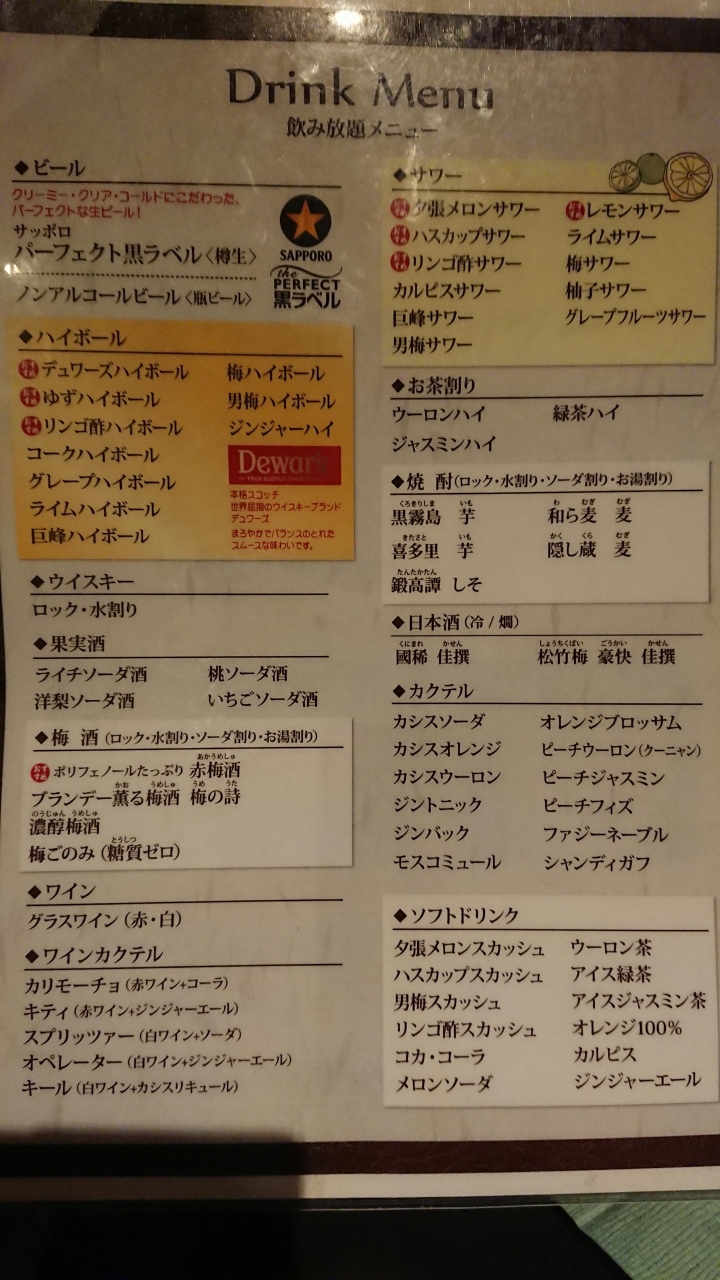 Drink Menu
飲み放題メニュー
◆ビール
クリーミー・クリア・コールドにこだわった、
パーフェクトな生ビール！
サッポロ
パーフェクト黒ラベル〈樽生〉
ノンアルコールビール〈瓶ビール〉
SAPPORO
the
PERFECT
黒ラベル
◆ハイボール
おすすめ デュワーズハイボール
おすすめ ゆずハイボール
おすすめ リンゴ酢ハイボール
コークハイボール
グレープハイボール
ライムハイボール
巨峰ハイボール
梅ハイボール
男梅ハイボール
ジンジャーハイ
Dewar's
本格スコッチ
世界屈指のウイスキーブランド
デュワーズ
まろやかでバランスのとれた
スムースな味わいです。
◆ウイスキー
ロック・水割り
◆果実酒
ライチソーダ酒 桃ソーダ酒
洋梨ソーダ酒 いちごソーダ酒
◆梅 酒（ロック・水割り・ソーダ割り・お湯割り）
あかうめしゅ
おすすめ ポリフェノールたっぷり 赤梅酒
かお うめしゅ うめ うた
ブランデー薫る梅酒 梅の詩
のうじゅん うめしゅ
濃醇梅酒
とうしつ
梅ごのみ（糖質ゼロ）
◆ワイン
グラスワイン（赤・白）
◆ワインカクテル
カリモーチョ（赤ワイン+コーラ）
キティ（赤ワイン+ジンジャーエール）
スプリッツァー（白ワイン+ソーダ）
オペレーター（白ワイン+ジンジャーエール）
キール（白ワイン+カシスリキュール）
◆サワー
おすすめ 夕張メロンサワー
おすすめ ハスカップサワー
おすすめ リンゴ酢サワー
カルピスサワー
巨峰サワー
男梅サワー
おすすめ レモンサワー
ライムサワー
梅サワー
柚子サワー
グレープフルーツサワー
◆お茶割り
ウーロンハイ 緑茶ハイ
ジャスミンハイ
◆焼 酎（ロック・水割り・ソーダ割り・お湯割り）
くろきりしま いも わ むぎ むぎ
黒霧島 芋 和ら麦 麦
きたさと いも かく くら むぎ
喜多里 芋 隠し蔵 麦
たんたかたん
鍛高譚 しそ
◆日本酒（冷 / 燗）
くにまれ かせん しょうちくばい ごうかい かせん
國稀 佳撰 松竹梅 豪快 佳撰
◆カクテル
カシスソーダ
カシスオレンジ
カシスウーロン
ジントニック
ジンバック
モスコミュール
オレンジブロッサム
ピーチウーロン（クーニャン）
ピーチジャスミン
ピーチフィズ
ファジーネーブル
シャンディガフ
◆ソフトドリンク
夕張メロンスカッシュ
ハスカップスカッシュ
男梅スカッシュ
リンゴ酢スカッシュ
コカ・コーラ
メロンソーダ
ウーロン茶
アイス緑茶
アイスジャスミン茶
オレンジ100%
カルピス
ジンジャーエール